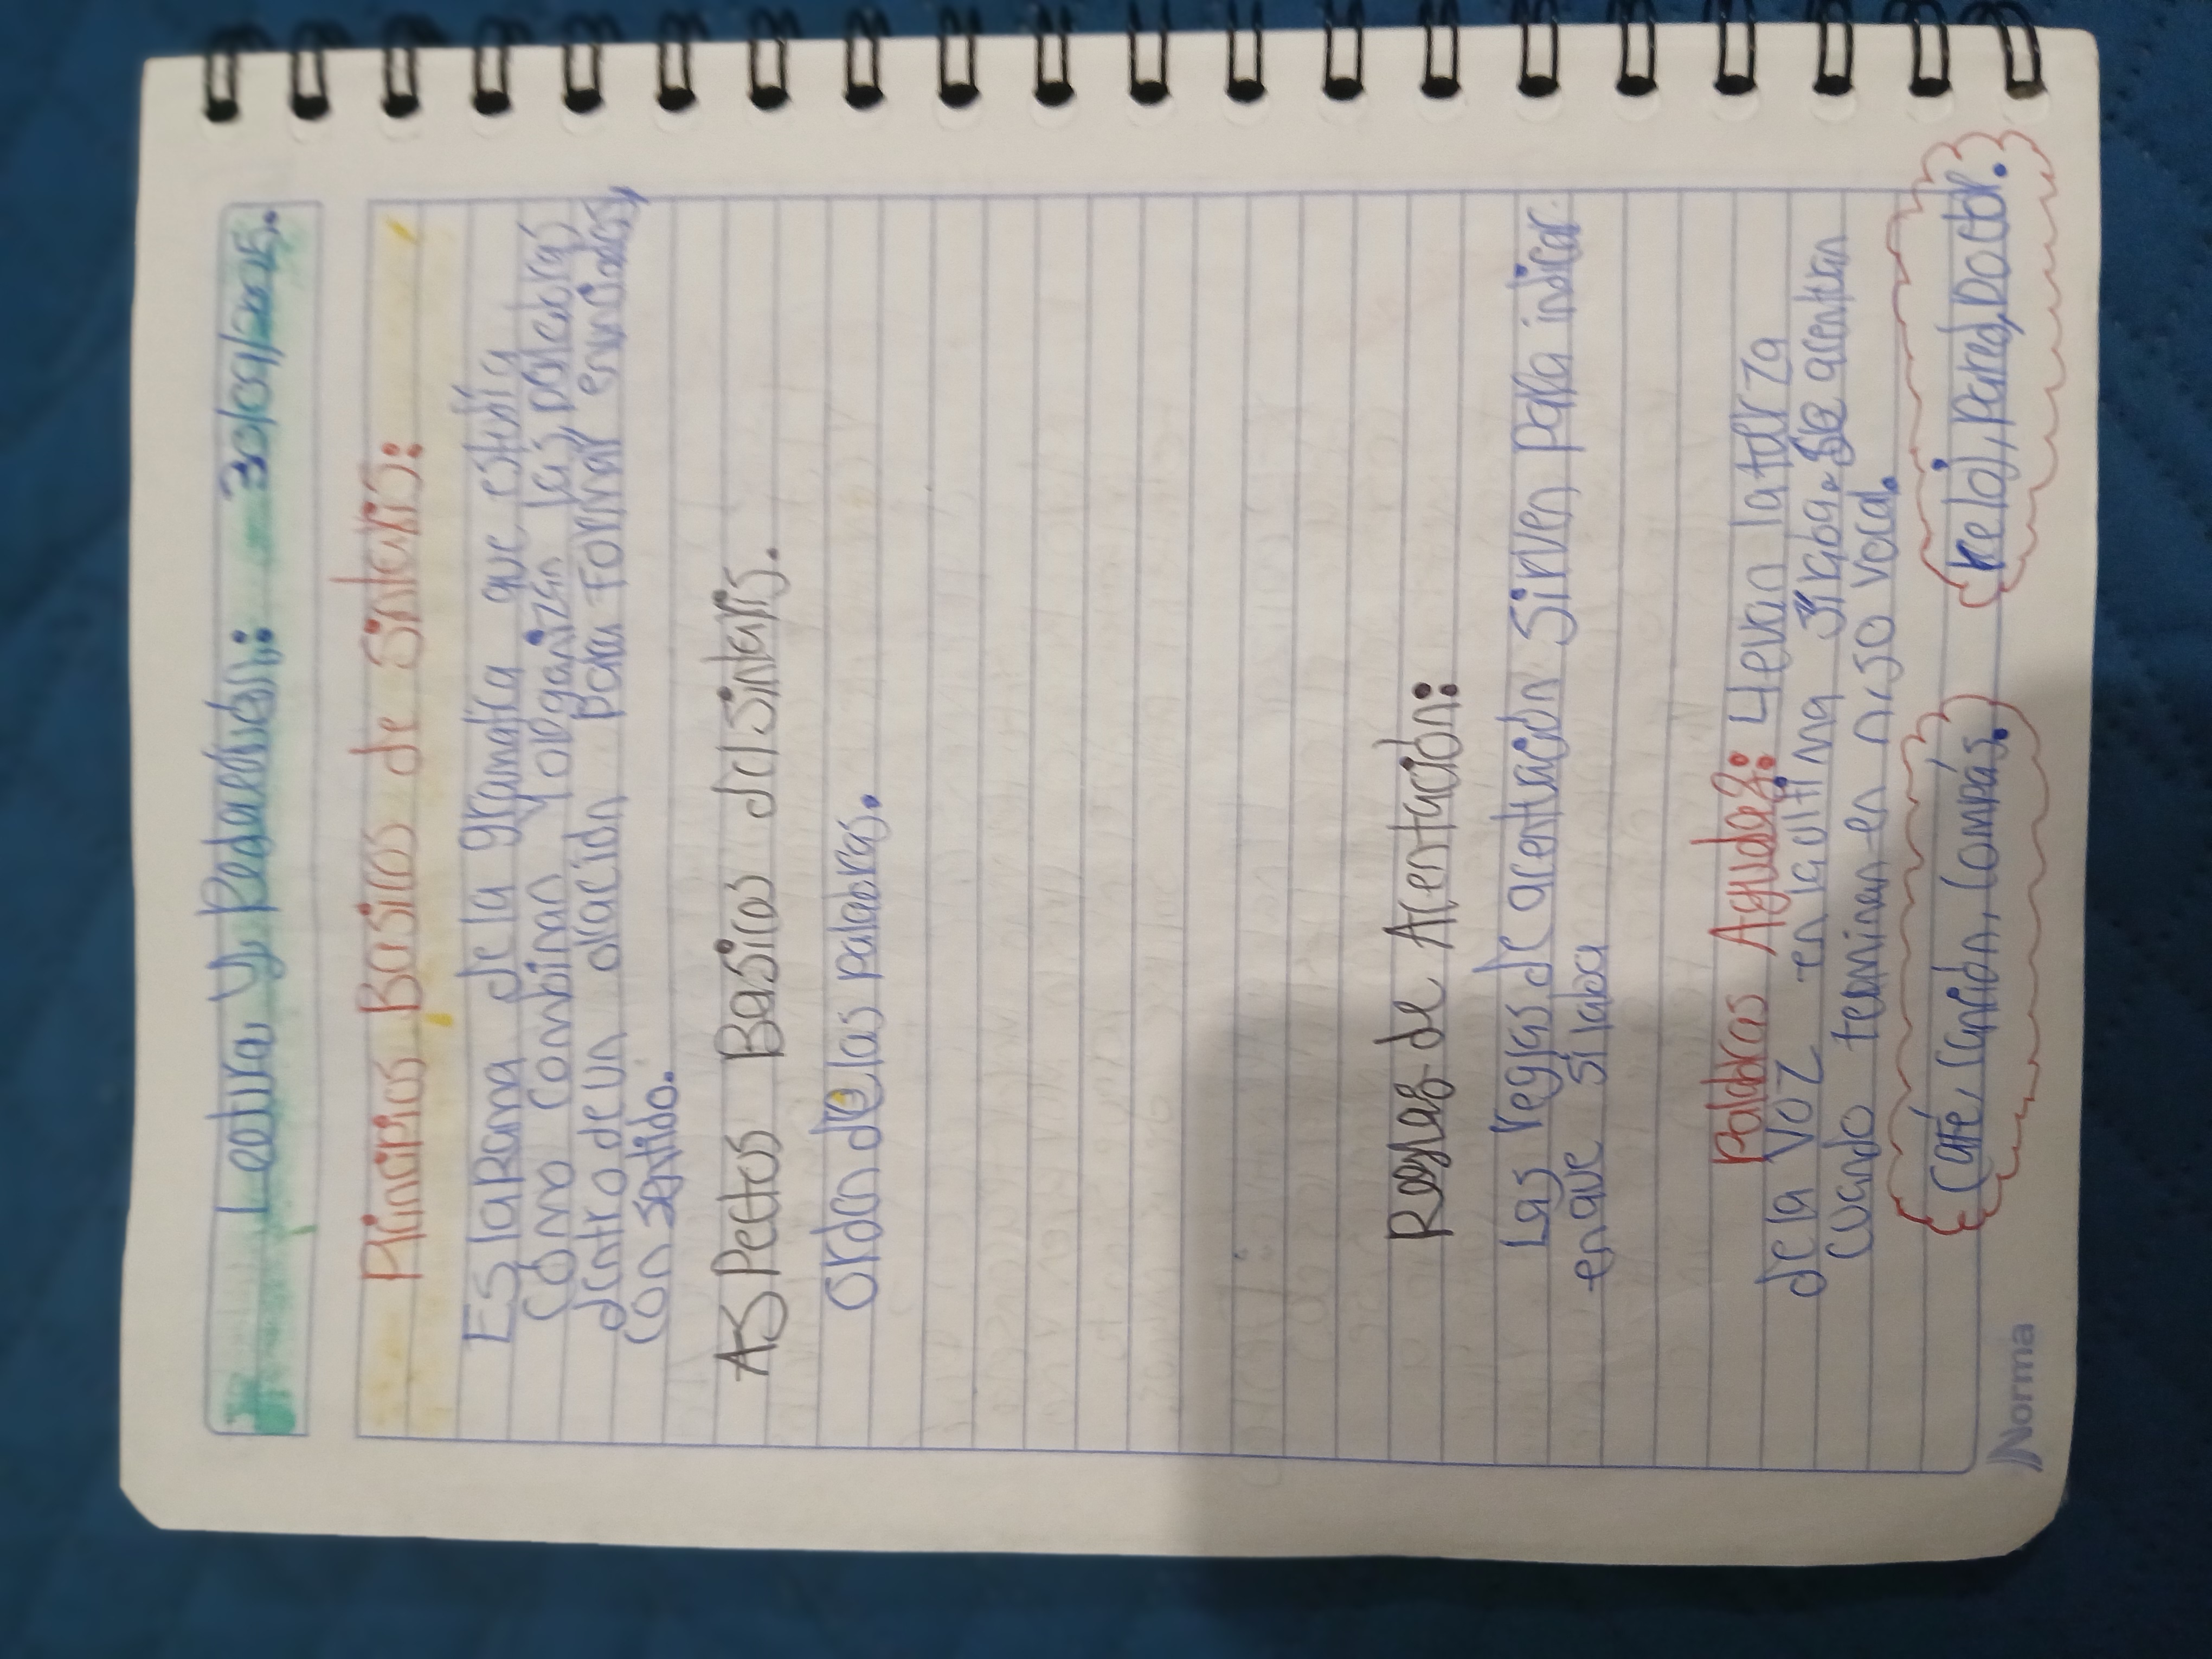 Lectura y Redacción: 30/09/2025.
Principios Basicos de Sintaxis:
Es la Rama de la gramatica que estudia
Cómo combinan y organizan las palabras
dentro de un olación para Formar enunciados,
Con sentido.
ASPectos Basicos de sintaxis.
Orden de las palabras.
Reglas de Acentación:
Las reglas de acentuación Sirven para indicar
en que silaba
Palabras Agudas: Llevan la fuerza
de la voz en la ultima silaba. se acentuan
Cuando terminen en n, s o vocal.
Café, Canción, Compás.
Reloj, Pared, Doctor.
Norma